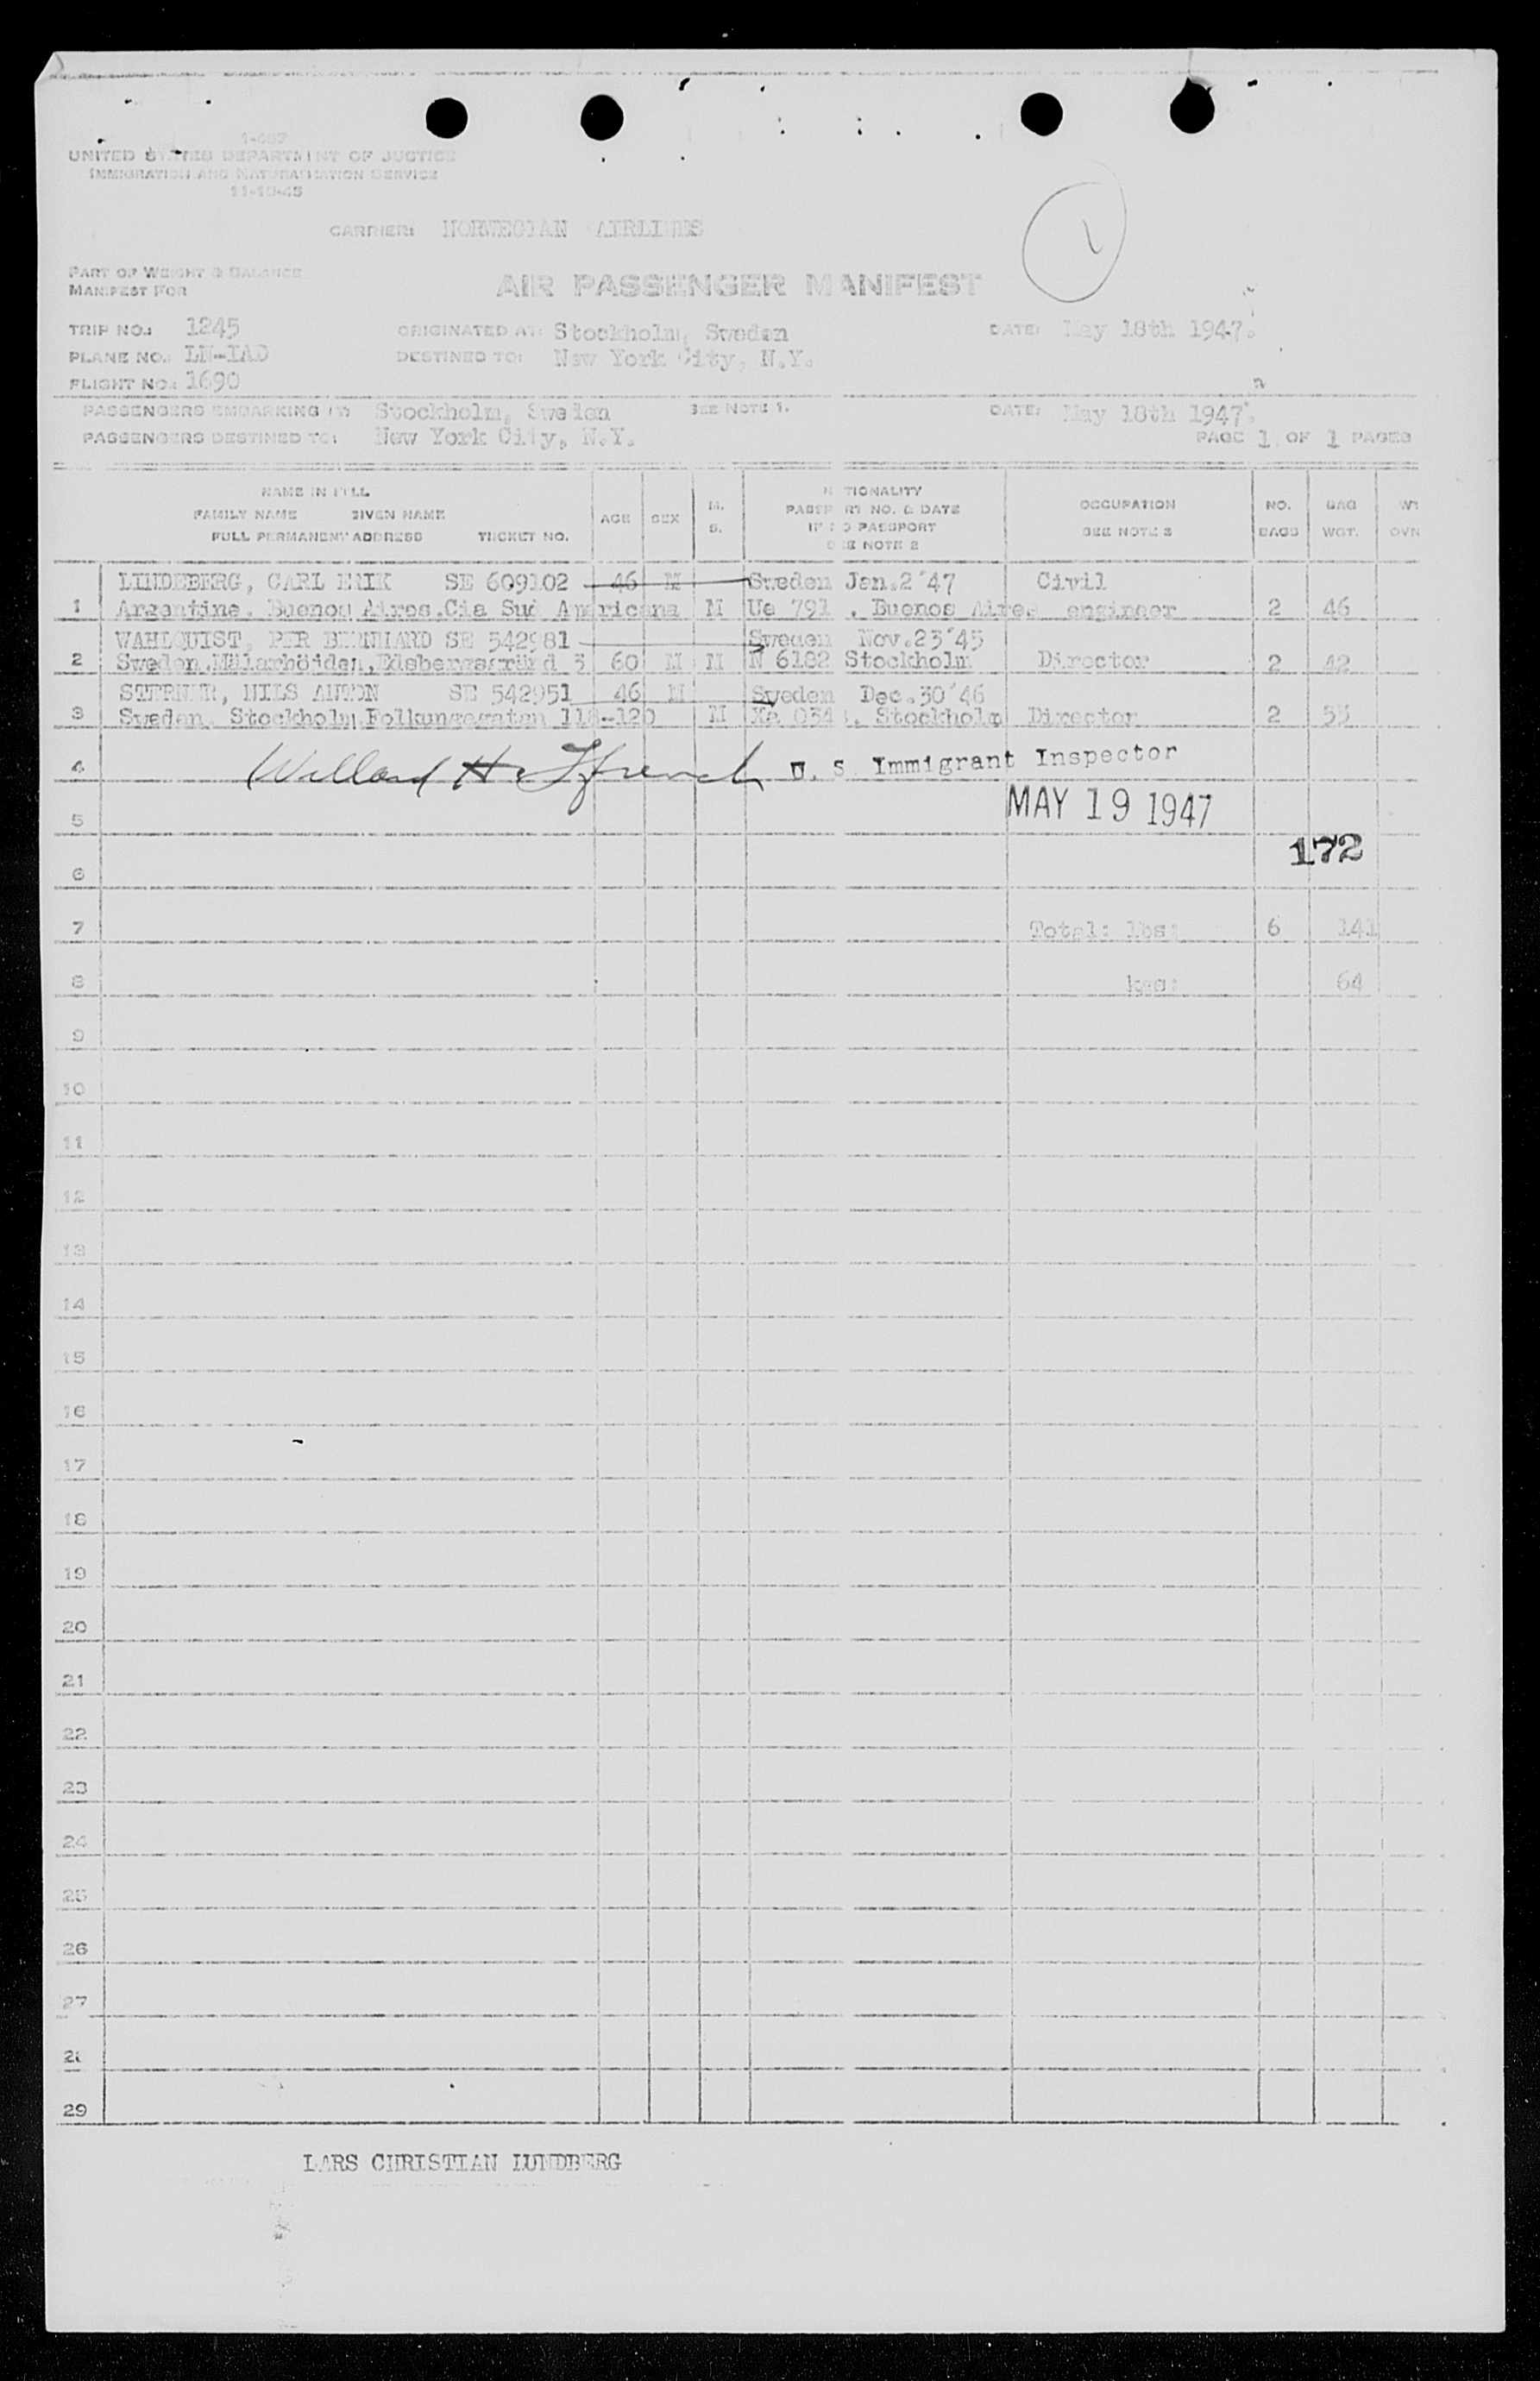 1-467
UNITED STATES DEPARTMENT OF JUSTICE
IMMIGRATION AND NATURALIZATION SERVICE
11-10-45
CARRIER: NORWEGIAN AIRLINES
1
PART OF WEIGHT & BALANCE
MANIFEST FOR
AIR PASSENGER MANIFEST
TRIP NO.: 1245 ORIGINATED AT: Stockholm, Sweden DATE: May 18th 1947.
PLANE NO.: LN-IAD DESTINED TO: New York City, N.Y.
FLIGHT NO.: 1690
PASSENGERS EMBARKING AT: Stockholm, Sweden SEE NOTE 1. DATE: May 18th 1947.
PASSENGERS DESTINED TO: New York City, N.Y. PAGE 1 OF 1 PAGES
NAME IN FULL
FAMILY NAME GIVEN NAME
FULL PERMANENT ADDRESS TICKET NO.
AGE
SEX
M.
S.
NATIONALITY
PASSPORT NO. & DATE
SEE NOTE 2
OCCUPATION
SEE NOTE 3
NO.
BAGS
BAG
WGT.
LINDEBERG, CARL ERIK SE 609102 46 M Sweden Jan.2'47 Civil
1 Argentine. Buenos Aires.Cia Sud Americana M Ue 791 , Buenos Aires engineer 2 46
WAHLQUIST, PER BERNHARD SE 542981 Sweden Nov.23'45
2 Sweden.Mälarhöjden, 3 60 M M N 6182 Stockholm Director 2 42
NILS ANTON SE 542951 46 M Sweden Dec.30'46
3 Sweden. Stockholm.Folkungagatan 118-120 M Stockholm Director 2 53
4 Willard H. Ffrench U. S Immigrant Inspector
5 MAY 19 1947
172
6
7 Total: lbs: 6 141
8 kgs: 64
9
10
11
12
13
14
15
16
17
18
19
20
21
22
23
24
25
26
27
28
29
LARS CHRISTIAN LUNDBERG